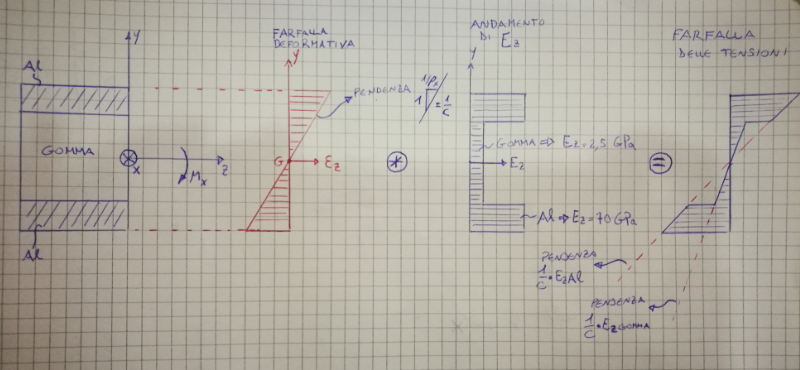 Al
y
GOMMA
x
z
Mx
Al
FARFALLA
DEFORMATIVA
y
G
Ez
PENDENZA
1/ρx
1
= 1/C
*
ANDAMENTO
DI Ez
y
GOMMA ⇒ Ez = 2,5 GPa
Ez
Al ⇒ Ez = 70 GPa
=
FARFALLA
DELLE TENSIONI
PENDENZA
1/C • EzAl
PENDENZA
1/C • Ez GOMMA